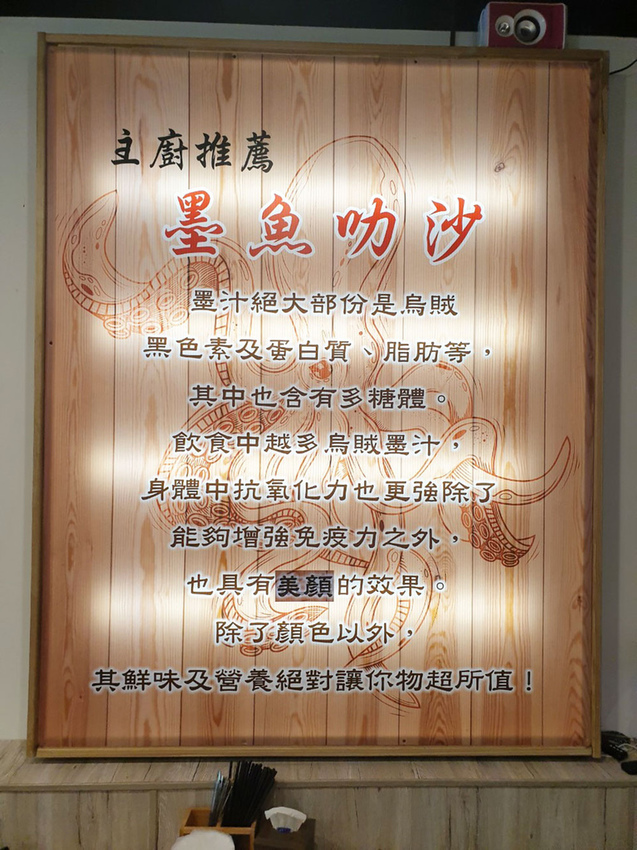 主廚推薦
墨魚叻沙
墨汁絕大部份是烏賊
黑色素及蛋白質、脂肪等，
其中也含有多糖體。
飲食中越多烏賊墨汁，
身體中抗氧化力也更強除了
能夠增強免疫力之外，
也具有美顏的效果。
除了顏色以外，
其鮮味及營養絕對讓你物超所值！